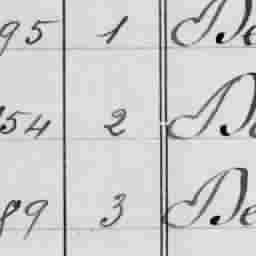 95 1 De
54 2 De
89 3 De